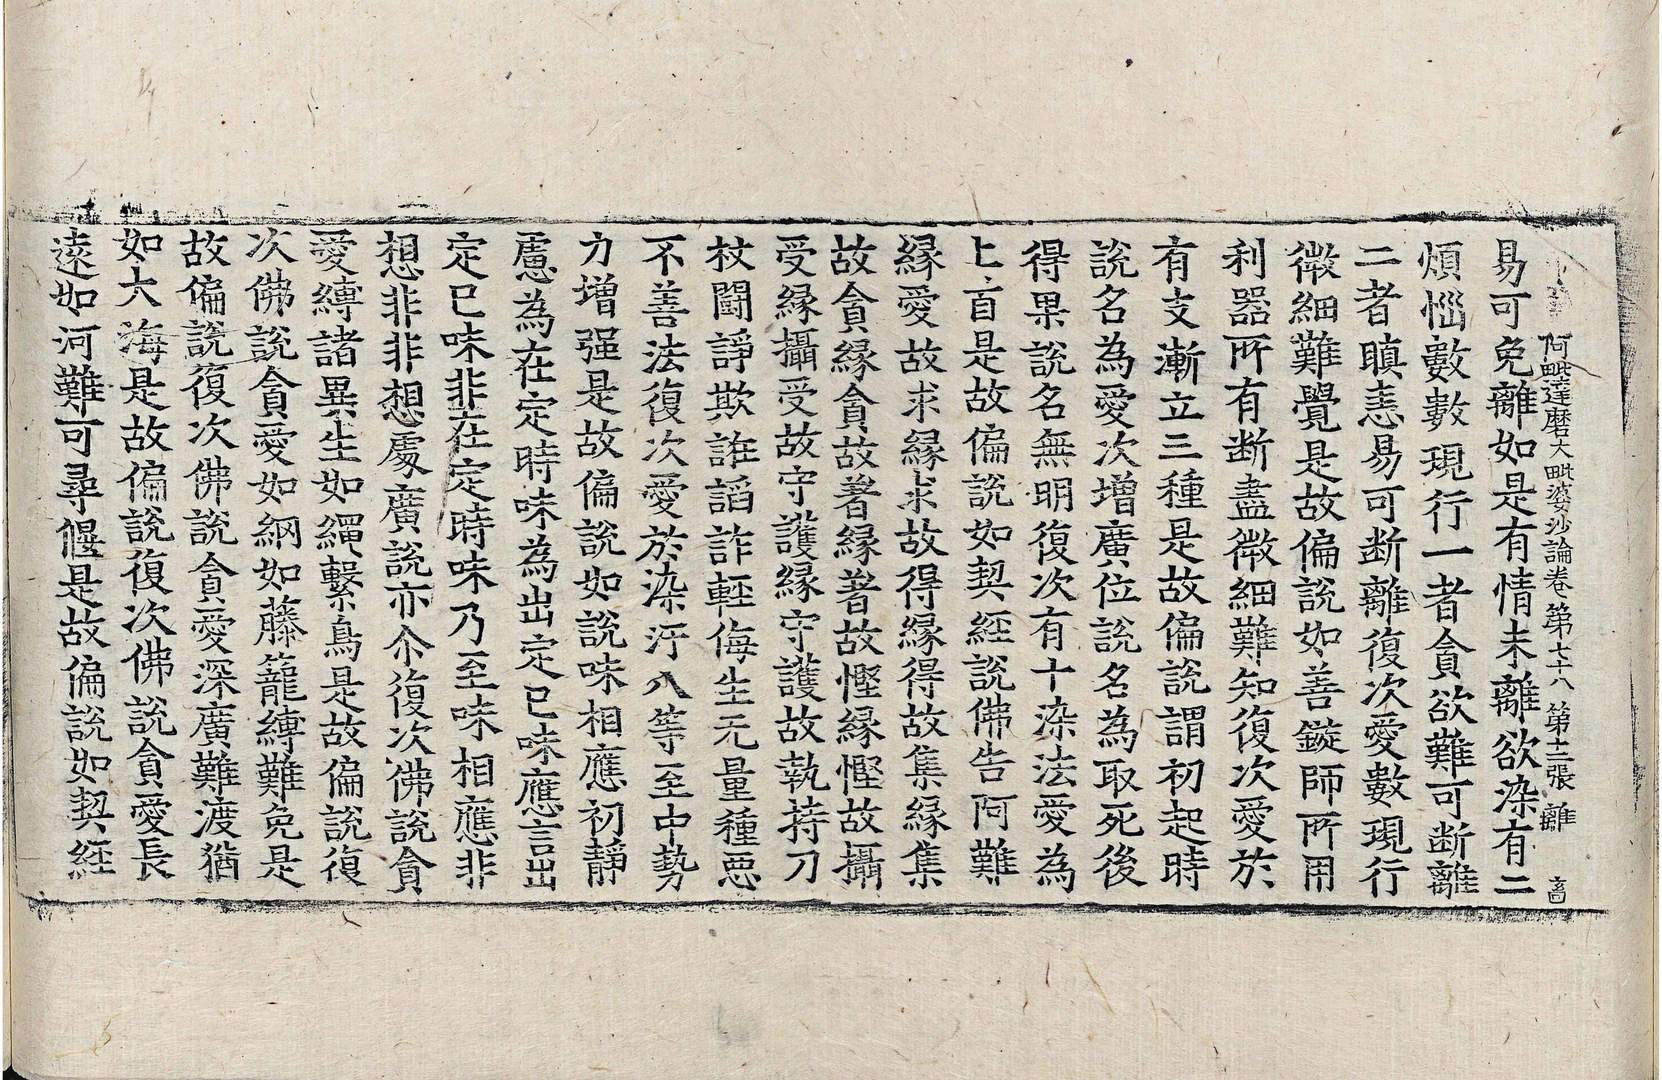 阿毗達磨大毗婆沙論卷第七十八 第十二張 離
易可免離如是有情未離欲染有二
煩惱數數現行一者貪欲難可断離
二者瞋恚易可断離復次愛數現行
微細難覺是故偏說如善鏇師所用
利器所有断盡微細難知復次愛於
有支漸立三種是故偏說謂初起時
說名為愛次增廣位說名為取死後
得果說名無明復次有十染法愛為
上首是故偏說如契經說佛告阿難
縁愛故求縁求故得縁得故集縁集
故貪縁貪故著縁著故慳縁慳故攝
受縁攝受故守護縁守護故執持刀
杖鬪諍欺誑諂詐輕侮生无量種惡
不善法復次愛於染汙八等至中勢
力增强是故偏說如說味相應初靜
慮為在定時味為出定已味應言出
定已味非在定時味乃至味相應非
想非非想處廣說亦尒復次佛說貪
愛縛諸異生如繩繫鳥是故偏說復
次佛說貪愛如網如藤籠縛難免是
故偏說復次佛說貪愛深廣難渡猶
如大海是故偏說復次佛說貪愛長
遠如河難可尋偃是故偏說如契經